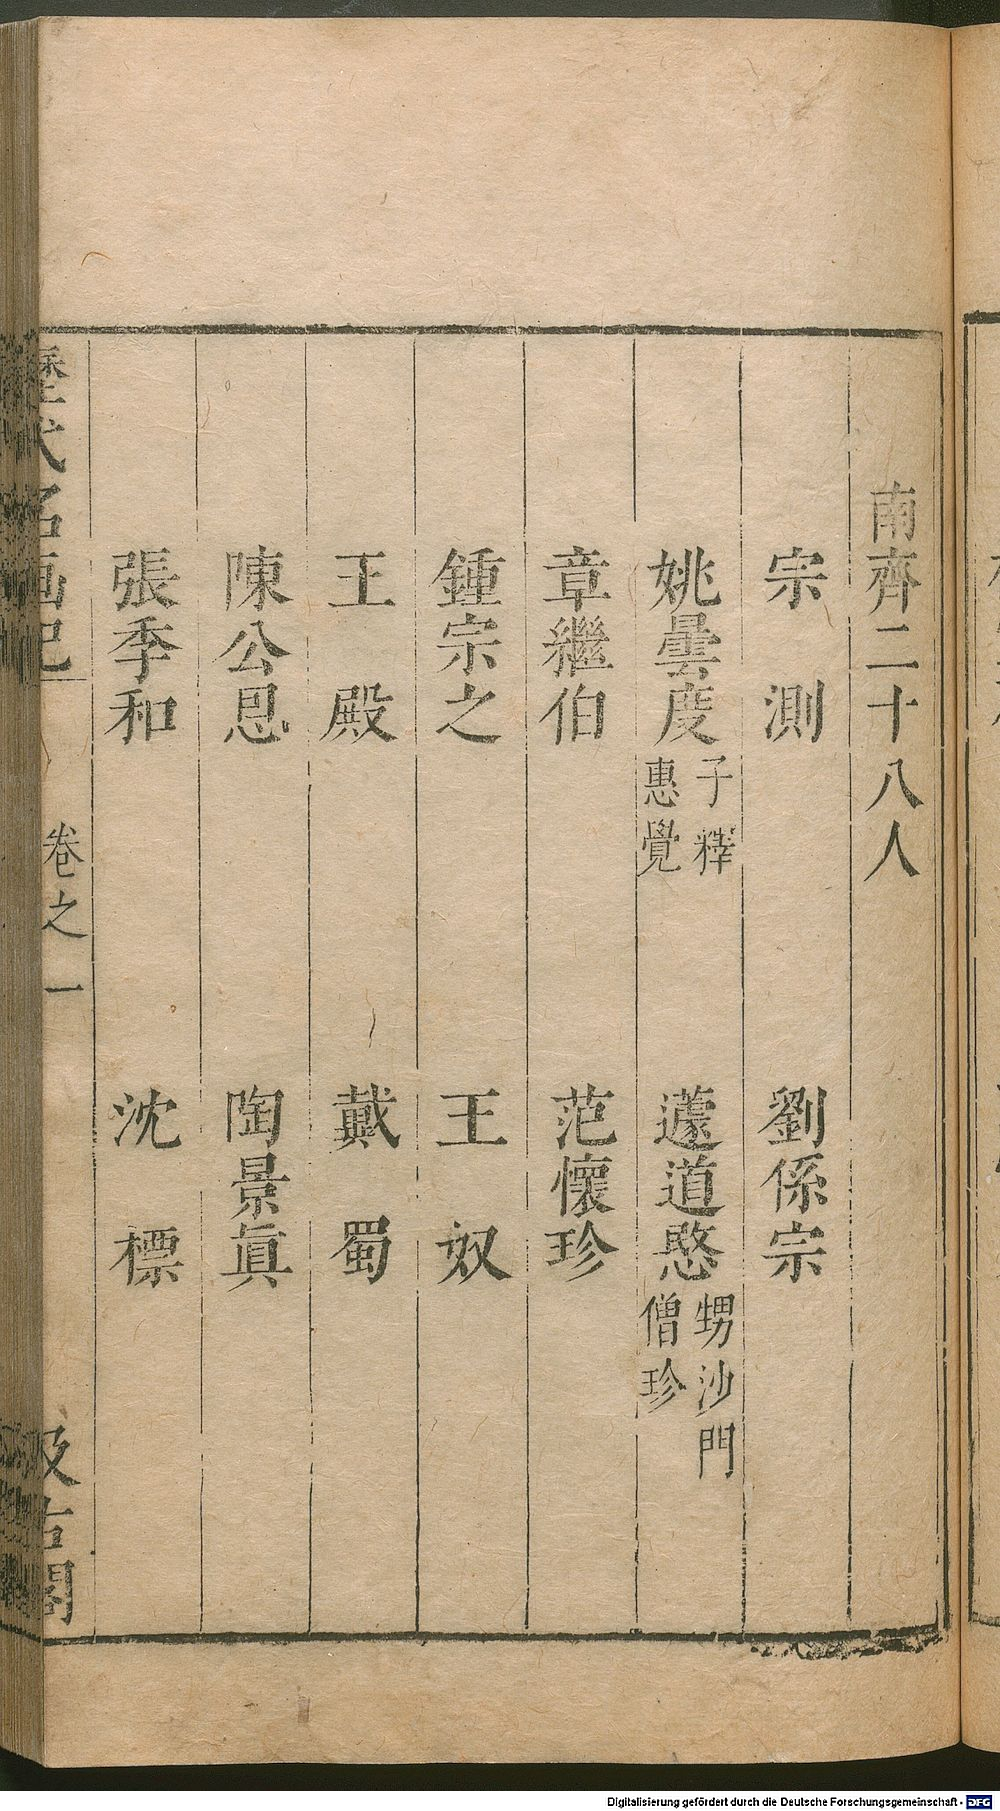 南齊二十八人
宗測 劉係宗
姚曇度 子釋惠覺 蘧道愍 甥沙門僧珍
章繼伯 范懷珍
鍾宗之 王奴
王殿 戴蜀
陳公恩 陶景眞
張季和 沈標
歷代名画記 卷之一 汲古閣
Digitalisierung gefördert durch die Deutsche Forschungsgemeinschaft - DFG